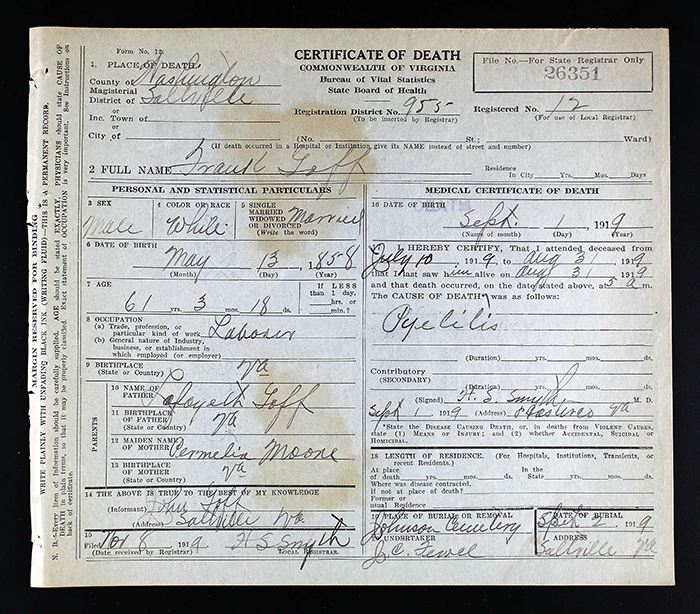 Form No. 12.
CERTIFICATE OF DEATH
COMMONWEALTH OF VIRGINIA
Bureau of Vital Statistics
State Board of Health
File No.—For State Registrar Only
26351
1. PLACE OF DEATH
County of Washington
Magisterial
District of Saltville
or
Inc. Town of
or
City of
Registration District No. 955
(To be inserted by Registrar)
Registered No. 12
(For use of Local Registrar)
(No. St.; Ward)
(If death occurred in a Hospital or Institution, give its NAME instead of street and number)
2 FULL NAME Frank Goff
Residence
In City Yrs. Mos. Days
PERSONAL AND STATISTICAL PARTICULARS
3 SEX
Male
4 COLOR OR RACE
White
5 SINGLE
MARRIED
WIDOWED
OR DIVORCED
(Write the word)
Married
6 DATE OF BIRTH
May 13, 1858
(Month) (Day) (Year)
7 AGE
61 yrs. 3 mos. 18 ds.
If LESS
than 1 day,
hrs. or
min.?
8 OCCUPATION
(a) Trade, profession, or
particular kind of work Laborer
(b) General nature of Industry,
business, or establishment in
which employed (or employer)
9 BIRTHPLACE
(State or Country) Va
PARENTS
10 NAME OF
FATHER Lafayette Goff
11 BIRTHPLACE
OF FATHER
(State or Country) Va
12 MAIDEN NAME
OF MOTHER Permelia Moore
13 BIRTHPLACE
OF MOTHER
(State or Country) Va
14 THE ABOVE IS TRUE TO THE BEST OF MY KNOWLEDGE
(Informant) Goff
(Address) Saltville Va
15
Filed Nov 8 1919 H S Smyth
(Date received by Registrar) LOCAL REGISTRAR.
MEDICAL CERTIFICATE OF DEATH
16 DATE OF DEATH
DEATH
Sept. 1, 1919
(Name of month) (Day) (Year)
I HEREBY CERTIFY, That I attended deceased from
July 10 1919 to Aug 31 1919
that I last saw him alive on Aug 31 1919
and that death occurred, on the date stated above, at 5 a m.
The CAUSE OF DEATH was as follows:
Pyelitis
(Duration) yrs. mos. ds.
Contributory
(SECONDARY)
(Duration) yrs. mos. ds.
(Signed) H. S. Smyth M. D.
Sept 1 1919 (Address) Va
*State the DISEASE CAUSING DEATH, or, in death from VIOLENT CAUSES,
state (1) MEANS OF INJURY; and (2) whether ACCIDENTAL, SUICIDAL or
HOMICIDAL.
18 LENGTH OF RESIDENCE. (For Hospitals, Institutions, Transients, or
recent Residents.)
At place In the
of death yrs. mos. ds. State yrs. mos. ds.
Where was disease contracted,
if not at place of death?
Former or
usual Residence
PLACE OF BURIAL OR REMOVAL
Johnson Cemetery
DATE OF BURIAL
Sept 2 1919
UNDERTAKER
J. C.
ADDRESS
Saltville Va
MARGIN RESERVED FOR BINDING
WRITE PLAINLY WITH UNFADING BLACK INK (WRITING FLUID)—THIS IS A PERMANENT RECORD.
N. B.—Every item of Information should be carefully supplied. AGE should be stated EXACTLY. PHYSICIANS should state CAUSE OF
DEATH in plain terms, so that it may be properly classified. Exact statement of OCCUPATION is very important. See Instructions on
back of certificate.